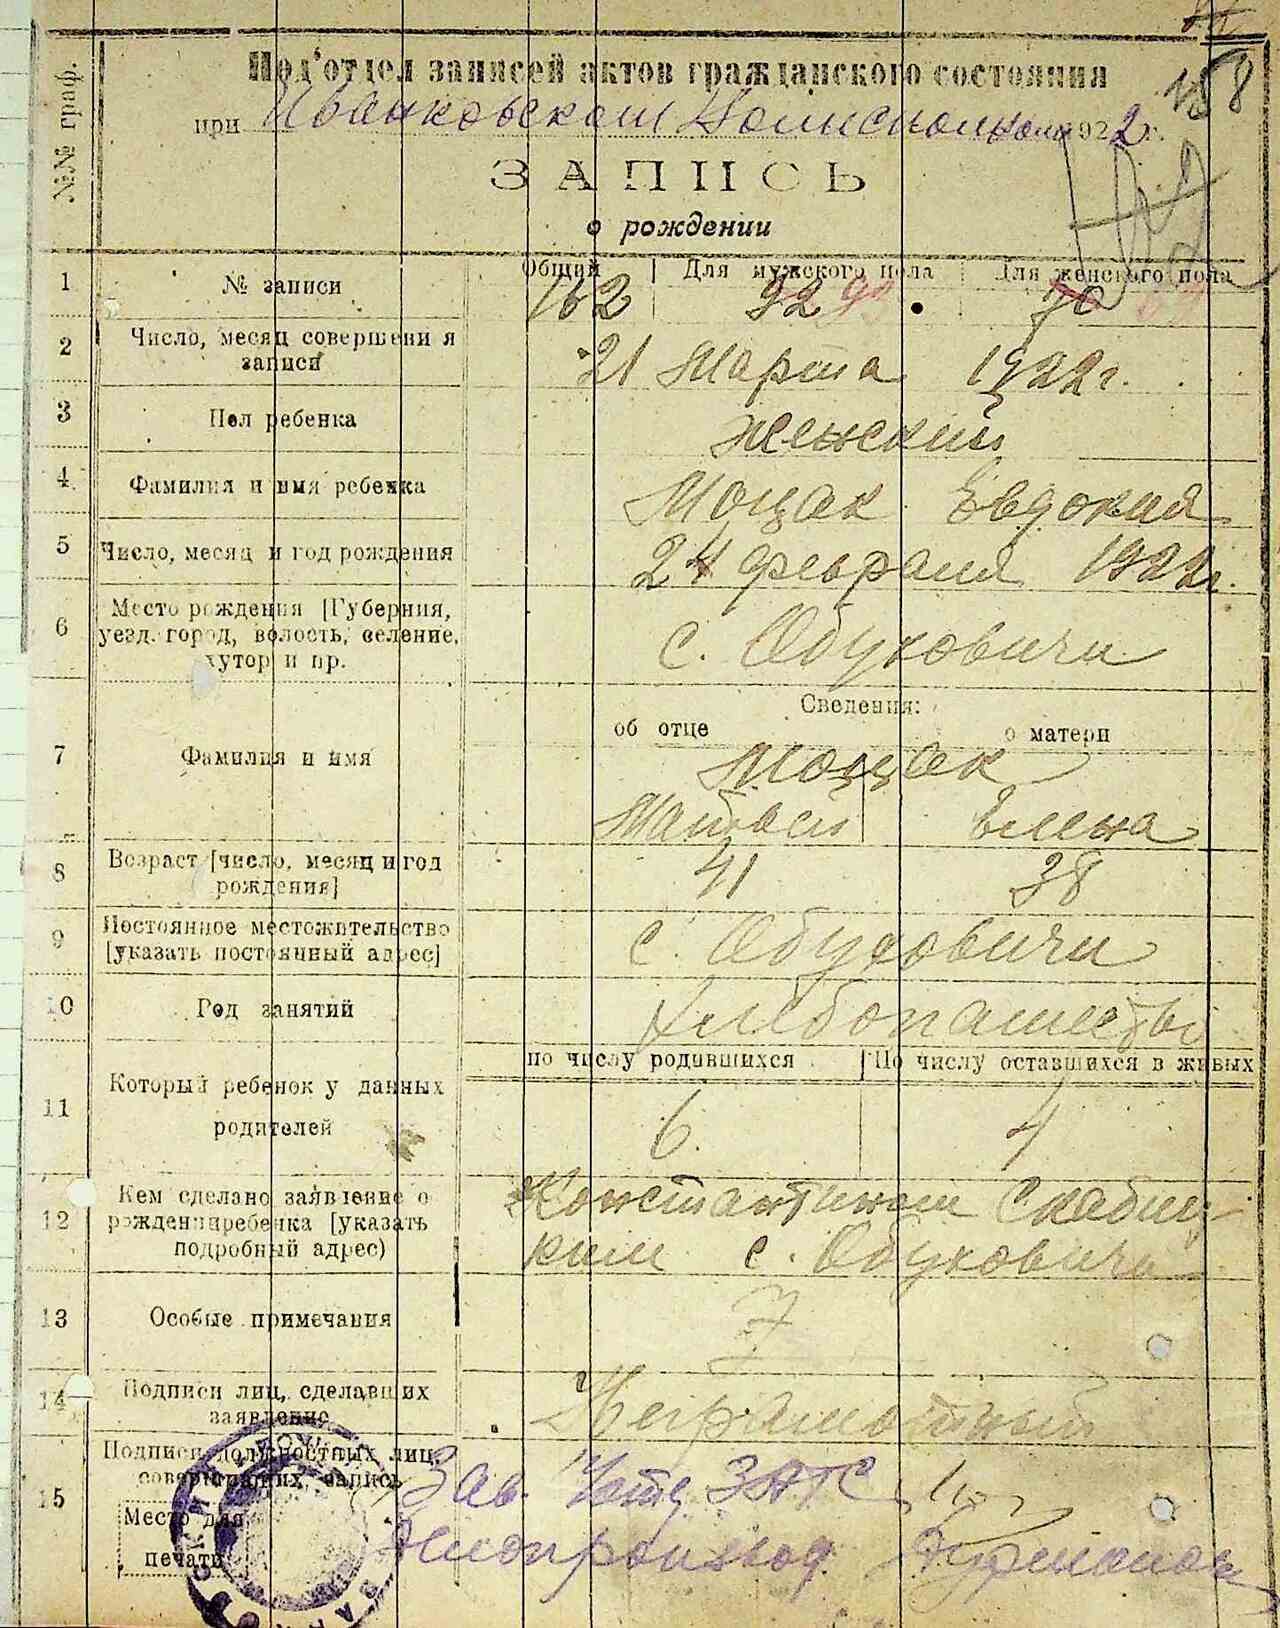 158
Под'отдел записей актов гражданского состояния
при Иванковском Волисполкоме 1922 г.
ЗАПИСЬ
о рождении
№№ граф.
Общий | Для мужского пола | Для женского пола
1 № записи 162 92 93 70
2 Число, месяц совершения записи 21 Марта 1922 г.
3 Пол ребенка Женский
4 Фамилия и имя ребенка Моцак Евдокия
5 Число, месяц и год рождения 24 февраля 1922 г.
6 Место рождения [Губерния, уезд. город, волость, селение, хутор и пр. с. Обуховичи
Сведения:
об отце о матери
7 Фамилия и имя Моцак
Матвей Елена
8 Возраст [число, месяц и год рождения] 41 38
9 Постоянное местожительство [указать постоянный адрес] с. Обуховичи
10 Род занятий Хлебопашество
по числу родившихся | По числу оставшихся в живых
11 Который ребенок у данных родителей 6. 4
12 Кем сделано заявление о рождении ребенка [указать подробный адрес) Константином Скабиц-
ким с. Обуховичи
13 Особые примечания
14 Подписи лиц, сделавших заявление Неграмотный
15 Подписи должностных лиц, совершивших запись Зав. ЗАГС
Место для печати Делопроизвод.